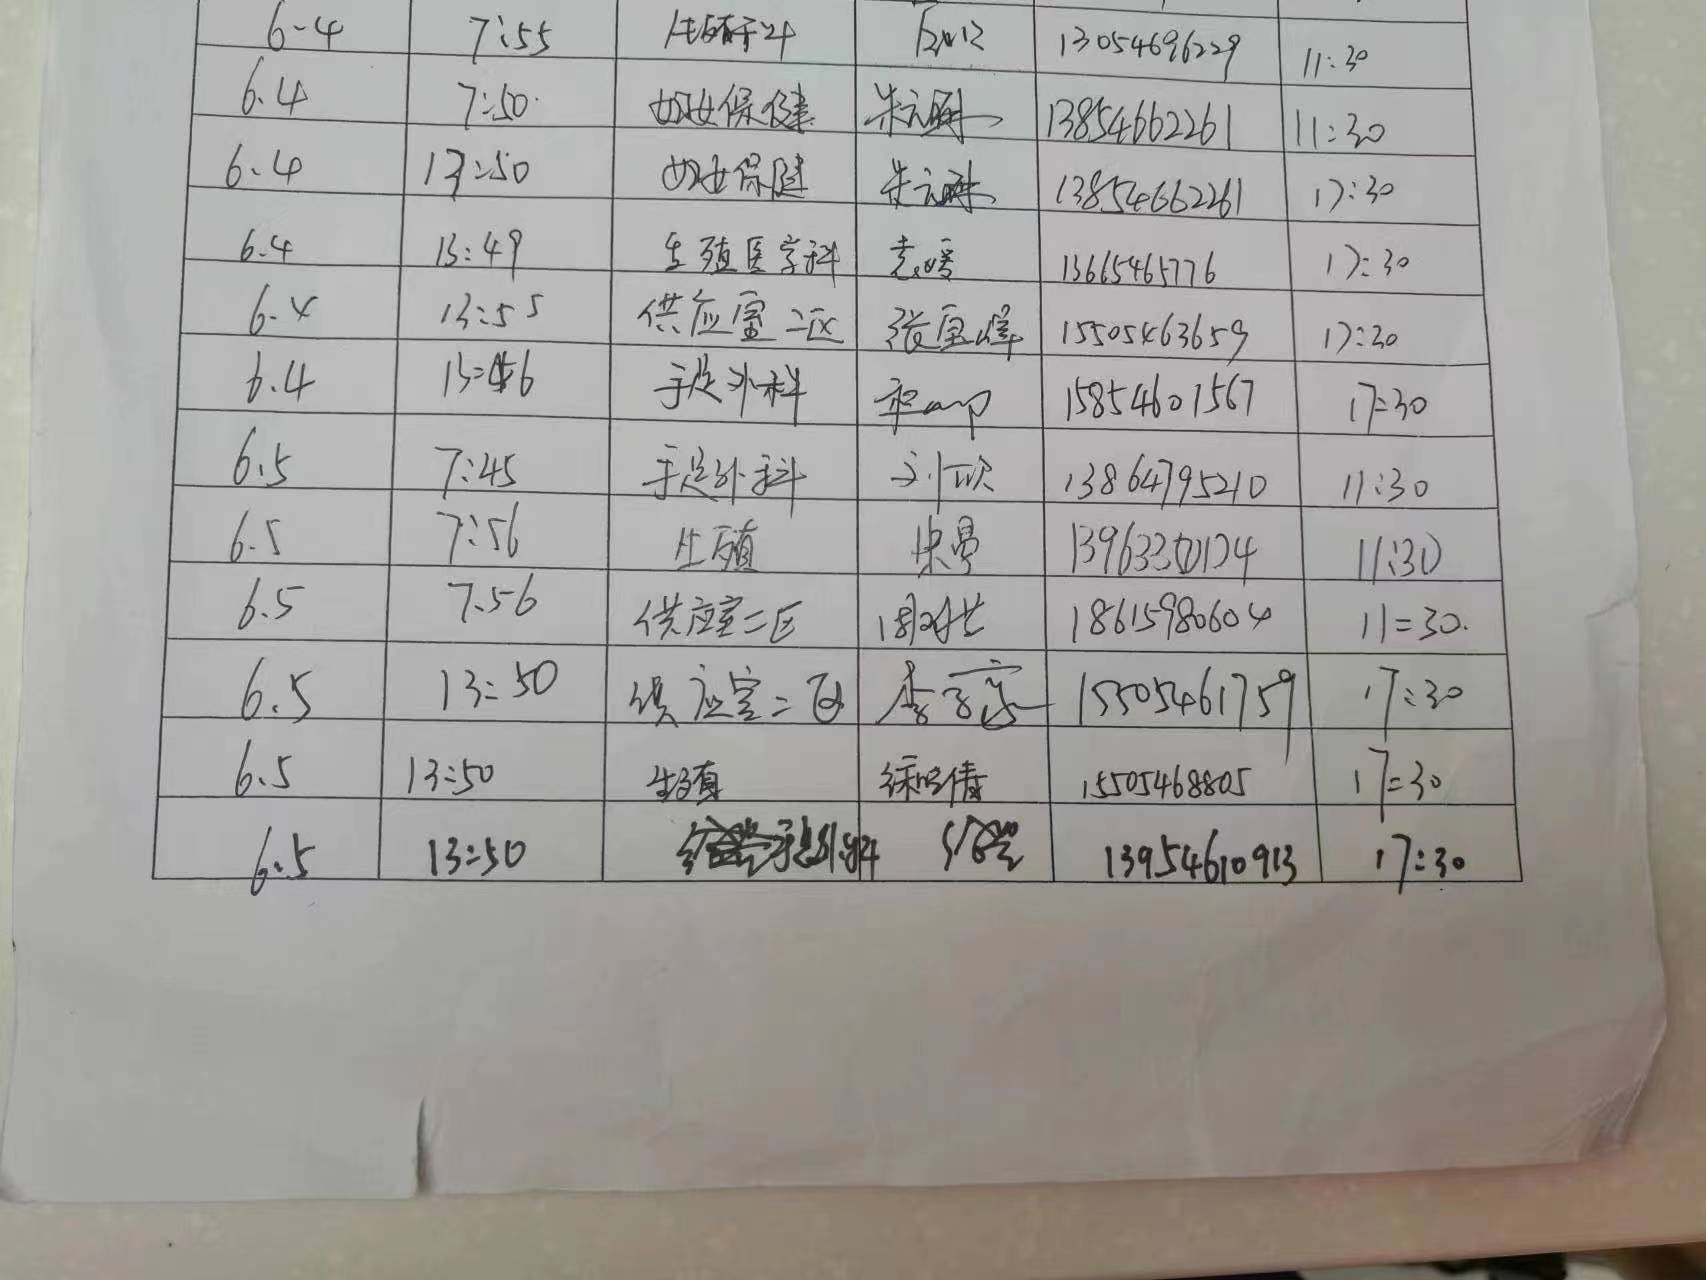 6-4 7:55 生殖科 13054696229 11:30
6.4 7:50 妇女保健 朱 13854662261 11:30
6.4 13:50 妇女保健 朱 13854662261 17:30
6.4 13:49 生殖医学科 袁媛 13665465776 17:30
6.4 13:55 供应室二区 张 15505463659 17:30
6.4 13:46 手足外科 15854601567 17:30
6.5 7:45 手足外科 刘欣 13864795210 11:30
6.5 7:56 生殖 11:30
6.5 7:56 供应室二区 周 18615980604 11:30
6.5 13:50 供应室二区 李 15505461759 17:30
6.5 13:50 生殖 徐 倩 15505468805 17:30
6.5 13:50 手足外科 13954610913 17:30